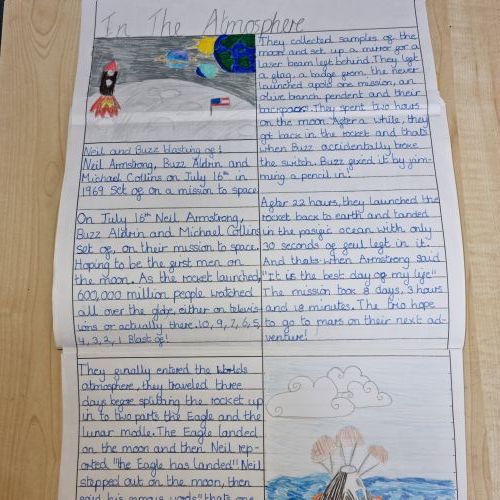 In The Atmosphere
Neil and Buzz blasting of!
Neil Armstrong, Buzz Aldrin and
Michael Collins on July 16th in
1969 Set of on a mission to space
On July 16th Neil Armstrong,
Buzz Aldrin and Michael Collins
set of, on their mission to space.
Hoping to be the first men on
the moon. As the rocket launched,
600,000 million people watched
all over the globe, either on televis-
ions or actually there. 10, 9, 7, 6, 5,
4, 3, 2, 1 Blast of!
They finally entered the worlds
atmosphere, they traveled three
days before splitting the rocket up
in to two parts the Eagle and the
lunar modle. The Eagle landed
on the moon and then Neil rep-
orted "the Eagle has landed". Neil
stepped out on the moon, then
said his famous words "thats one
They collected samples of the
moon and set up a mirror for a
laser beam left behind. They left
a flag, a badge from, the never
launched apolo one mission, an
olive branch pendent and their
backpacks. They spent two hours
on the moon. After a while, they
got back in the rocket and thats
when Buzz accidentally broke
the switch. Buzz fixed it by jam-
ming a pencil in!
After 22 hours, they launched the
rocket back to earth and landed
in the pasific ocean with only
30 seconds of feul left in it.
And thats when Armstrong said
"It is the best day of my life"
The mission took 8 days, 3 hours
and 18 minutes. The trio hope
to go to mars on their next ad-
venture!